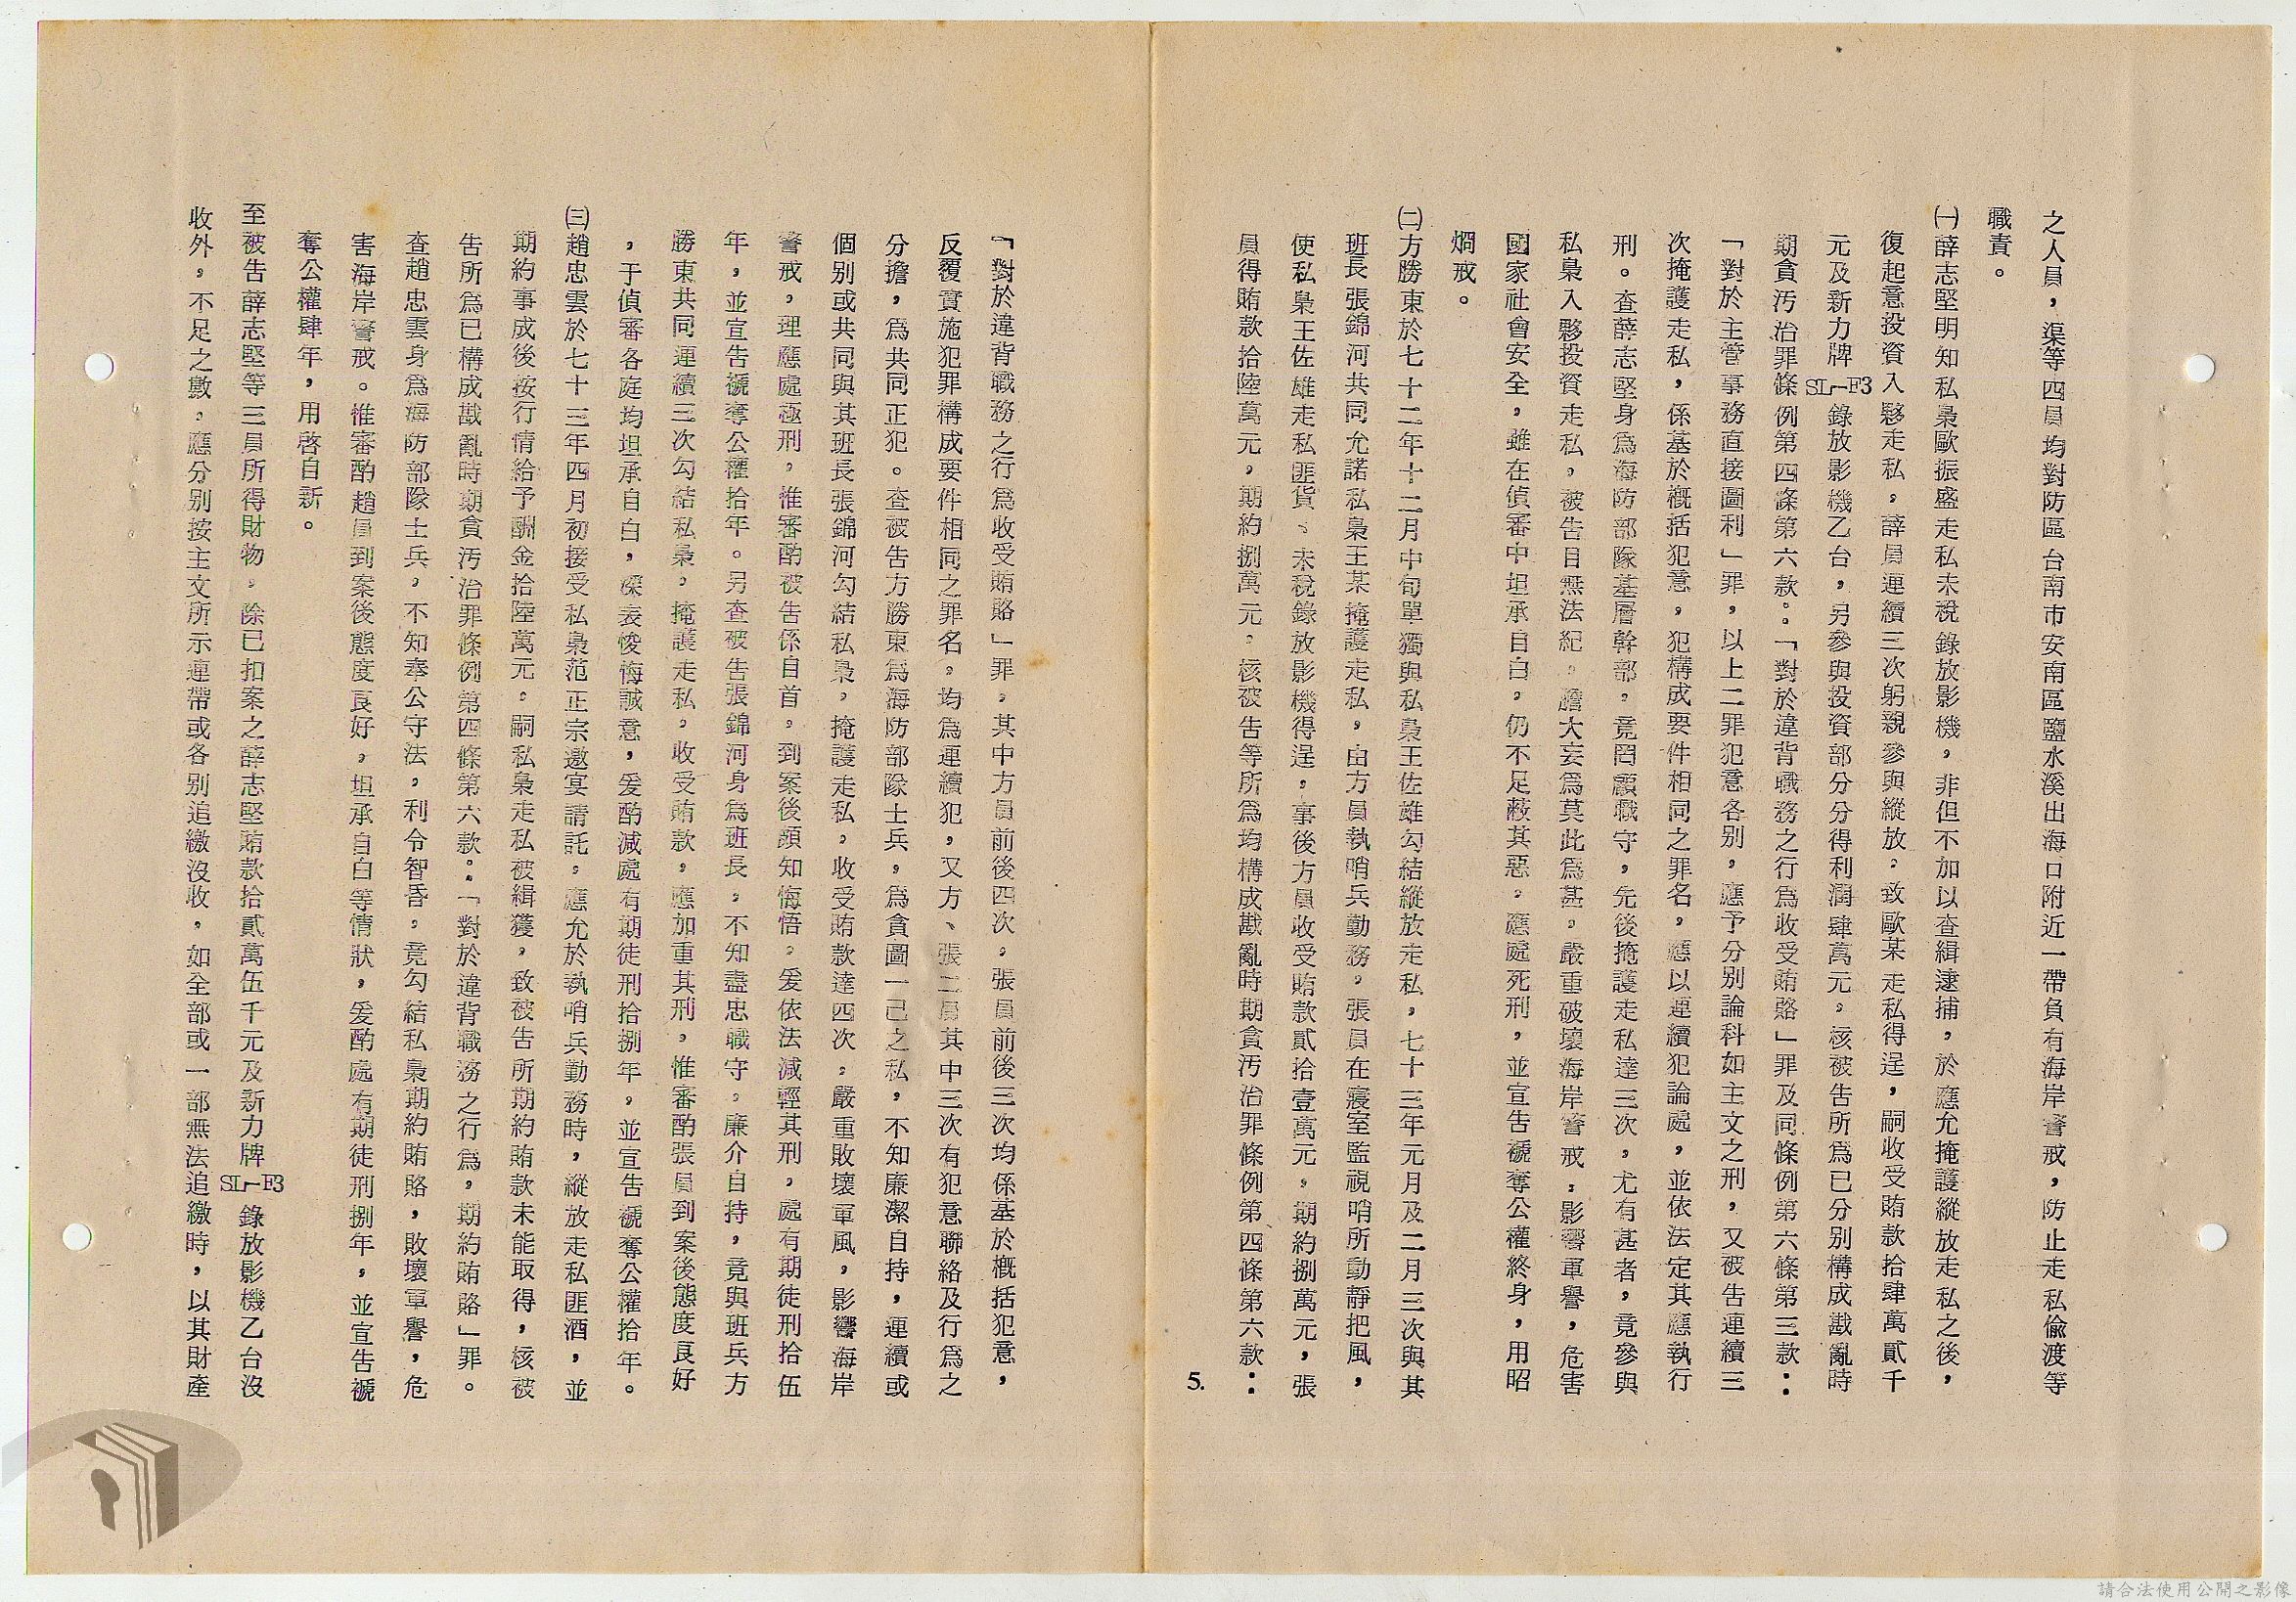 之人員，渠等四員均對防區台南市安南區鹽水溪出海口附近一帶負有海岸警戒，防止走私偷渡等
職責。
㈠薛志堅明知私梟歐振盛走私未稅錄放影機，非但不加以查緝逮捕，於應允掩護縱放走私之後，
復起意投資入夥走私，薛員連續三次躬親參與縱放，致歐某走私得逞，嗣收受賄款拾肆萬貳千
元及新力牌SL－F3錄放影機乙台，另參與投資部分分得利潤肆萬元。核被告所為已分別構成戡亂時
期貪污治罪條例第四條第六款：「對於違背職務之行為收受賄賂」罪及同條例第六條第三款：
「對於主管事務直接圖利」罪，以上二罪犯意各別，應予分別論科如主文之刑，又被告連續三
次掩護走私，係基於概括犯意，犯構成要件相同之罪名，應以連續犯論處，並依法定其應執行
刑。查薛志堅身為海防部隊基層幹部，竟罔顧職守，先後掩護走私達三次，尤有甚者，竟參與
私梟入夥投資走私，被告目無法紀，膽大妄為莫此為甚，嚴重破壞海岸警戒，影響軍譽，危害
國家社會安全，雖在偵審中坦承自白，仍不足蔽其惡，應處死刑，並宣告褫奪公權終身，用昭
烱戒。
㈡方勝東於七十二年十二月中旬單獨與私梟王佐雄勾結縱放走私，七十三年元月及二月三次與其
班長張錦河共同允諾私梟王某掩護走私，由方員執哨兵勤務，張員在寢室監視哨所動靜把風，
使私梟王佐雄走私匪貨、未稅錄放影機得逞，事後方員收受賄款貳拾壹萬元，期約捌萬元，張
員得賄款拾陸萬元，期約捌萬元。核被告等所為均構成戡亂時期貪污治罪條例第四條第六款：
5.
「對於違背職務之行為收受賄賂」罪，其中方員前後四次，張員前後三次均係基於概括犯意，
反覆實施犯罪構成要件相同之罪名，均為連續犯，又方、張二員其中三次有犯意聯絡及行為之
分擔，為共同正犯。查被告方勝東為海防部隊士兵，為貪圖一己之私，不知廉潔自持，連續或
個別或共同與其班長張錦河勾結私梟，掩護走私，收受賄款達四次，嚴重敗壞軍風，影響海岸
警戒，理應處極刑，惟審酌被告係自首，到案後頗知悔悟，爰依法減輕其刑，處有期徒刑拾伍
年，並宣告褫奪公權拾年。另查被告張錦河身為班長，不知盡忠職守，廉介自持，竟與班兵方
勝東共同連續三次勾結私梟，掩護走私，收受賄款，應加重其刑，惟審酌張員到案後態度良好
，于偵審各庭均坦承自白，深表悛悔誠意，爰酌減處有期徒刑拾捌年，並宣告褫奪公權拾年。
㈢趙忠雲於七十三年四月初接受私梟范正宗邀宴請託，應允於執哨兵勤務時，縱放走私匪酒，並
期約事成後按行情給予酬金拾陸萬元，嗣私梟走私被緝獲，致被告所期約賄款未能取得，核被
告所為已構成戡亂時期貪污治罪條例第四條第六款：「對於違背職務之行為，期約賄賂」罪。
查趙忠雲身為海防部隊士兵，不知奉公守法，利令智昏，竟勾結私梟期約賄賂，敗壞軍譽，危
害海岸警戒。惟審酌趙員到案後態度良好，坦承自白等情狀，爰酌處有期徒刑捌年，並宣告褫
奪公權肆年，用啓自新。
至被告薛志堅等三員所得財物，除已扣案之薛志堅賄款拾貳萬伍千元及新力牌SL－F3錄放影機乙台沒
收外，不足之數，應分別按主文所示連帶或各別追繳沒收，如全部或一部無法追繳時，以其財產
請合法使用公開之影像